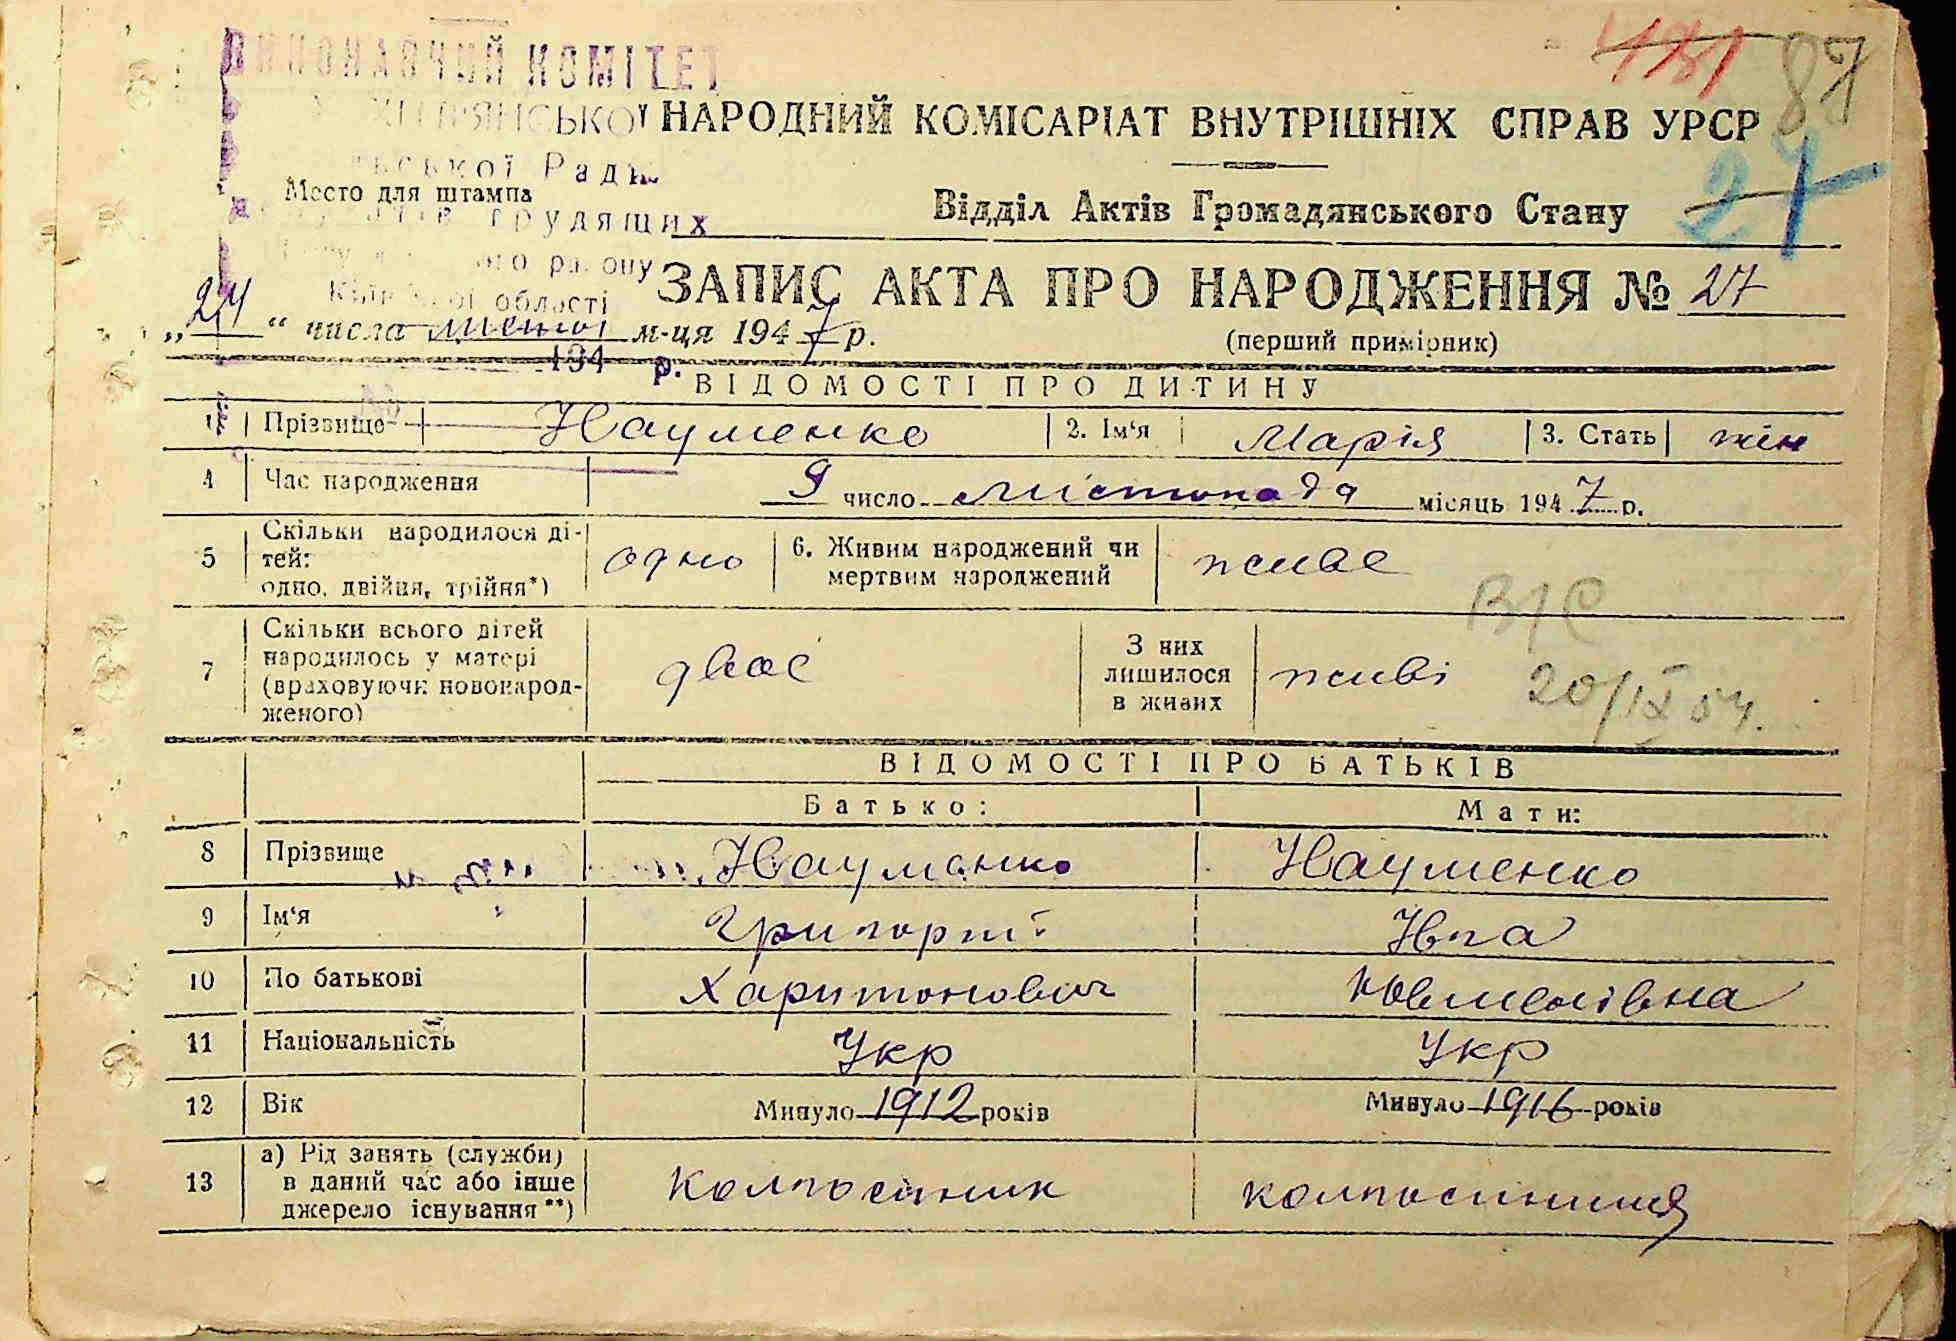 ВИКОНАВЧИЙ КОМІТЕТ
481
87
НАРОДНИЙ КОМІСАРІАТ ВНУТРІШНІХ СПРАВ УРСР
Ради
Место для штампа
Відділ Актів Громадянського Стану
27
трудящих
району
області
ЗАПИС АКТА ПРО НАРОДЖЕННЯ № 27
„24“ числа листоп м-ця 1947 р.
(перший примірник)
194 р.
ВІДОМОСТІ ПРО ДИТИНУ
1 Прізвище Науменко 2. Ім‘я Марія 3. Стать жін
4 Час народження 9 число листопада місяць 1947 р.
5 Скільки народилося ді-
тей:
одно, двійня, трійня*) одно 6. Живим народжений чи
мертвим народжений живе
В/С
7 Скільки всього дітей
народилось у матері
(враховуючи новонарод-
женого) двоє З них
лишилося
в живих живі
20/IX 54.
ВІДОМОСТІ ПРО БАТЬКІВ
Батько: Мати:
8 Прізвище Науменко Науменко
9 Ім‘я Григорій
10 По батькові Харитонович Овменівна
11 Національність Укр Укр
12 Вік Минуло 1912 років Минуло 1916 років
13 а) Рід занять (служби)
в даний час або інше
джерело існування**) колгоспник колгоспниця